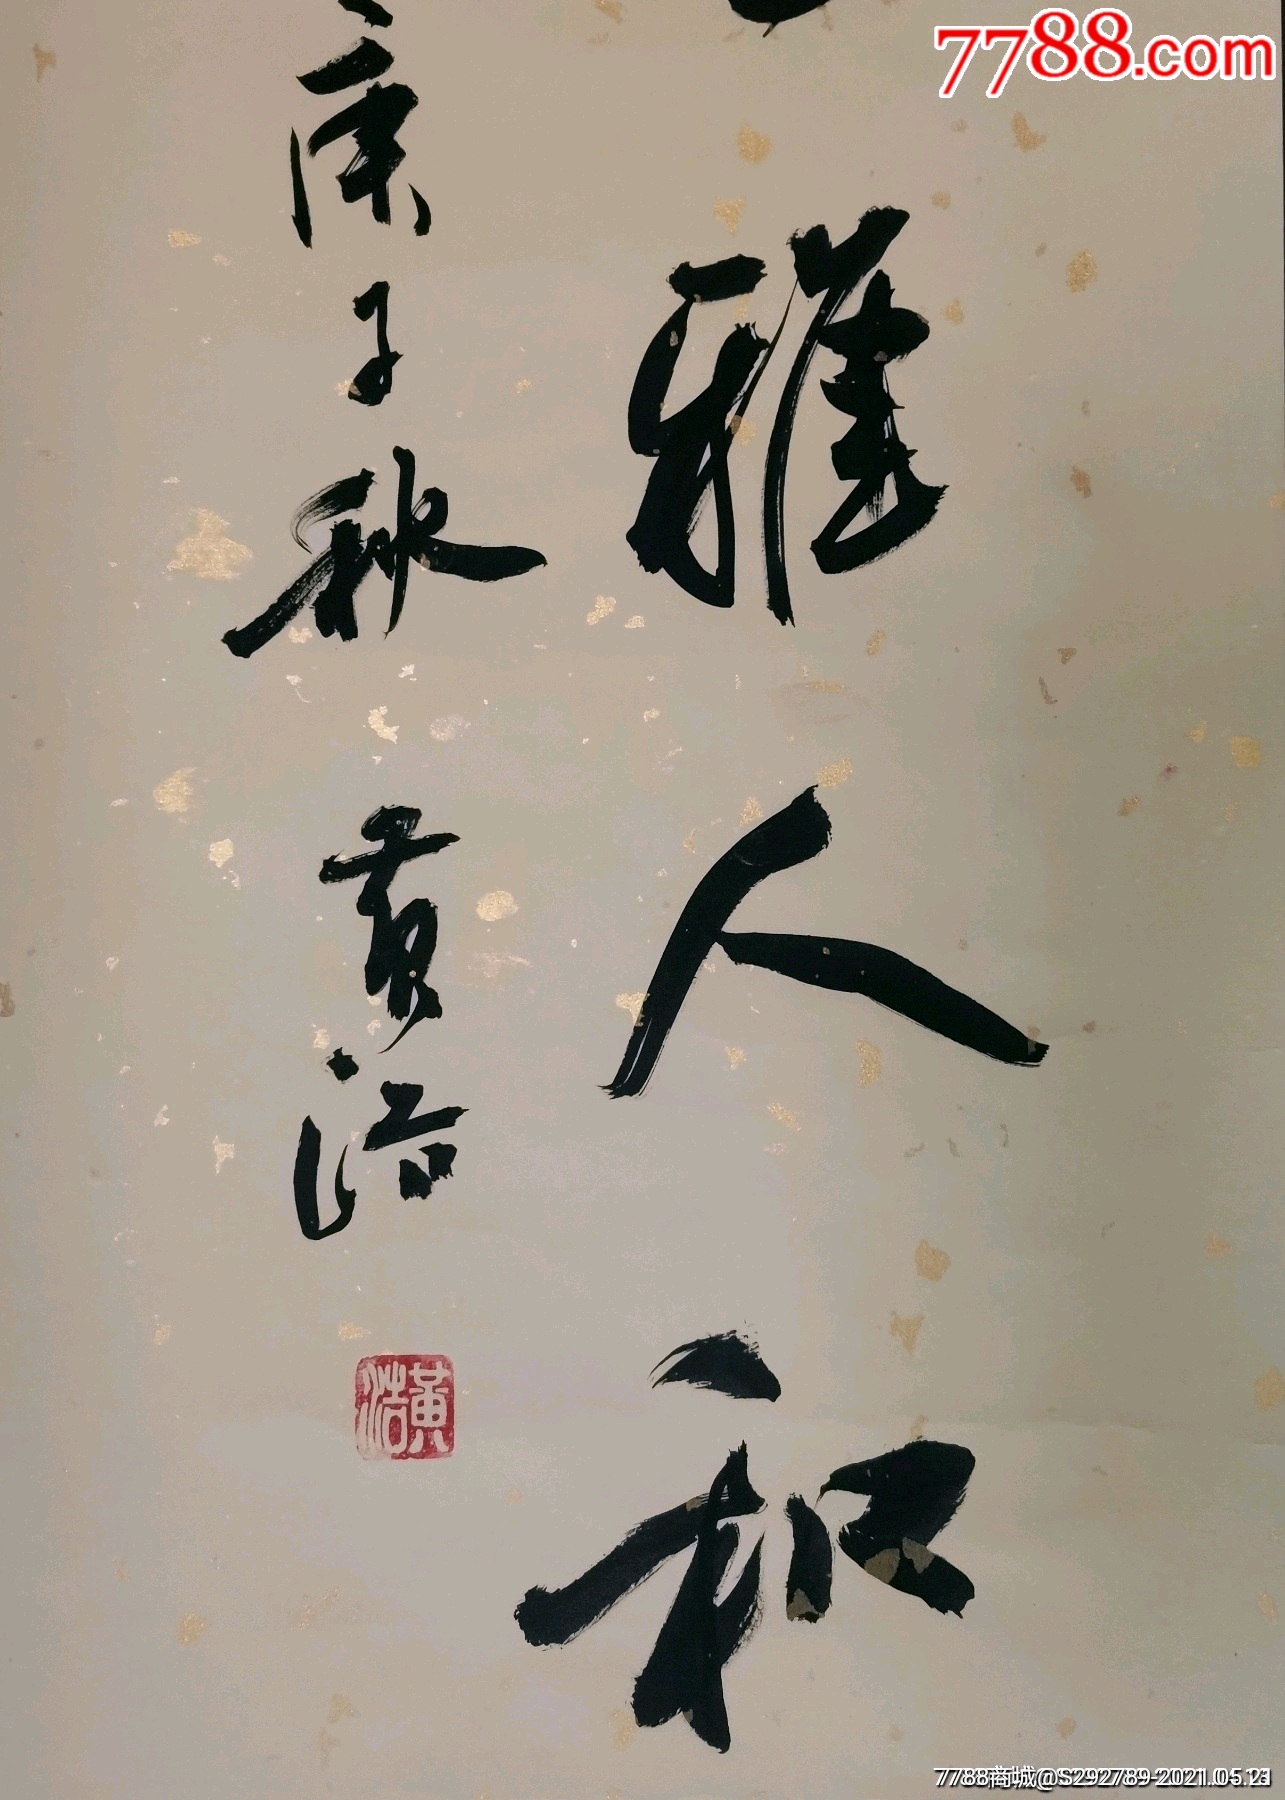 7788.com
雅人和
庚子秋 黄浩
黃浩
7788商城@S292789-2021.05.